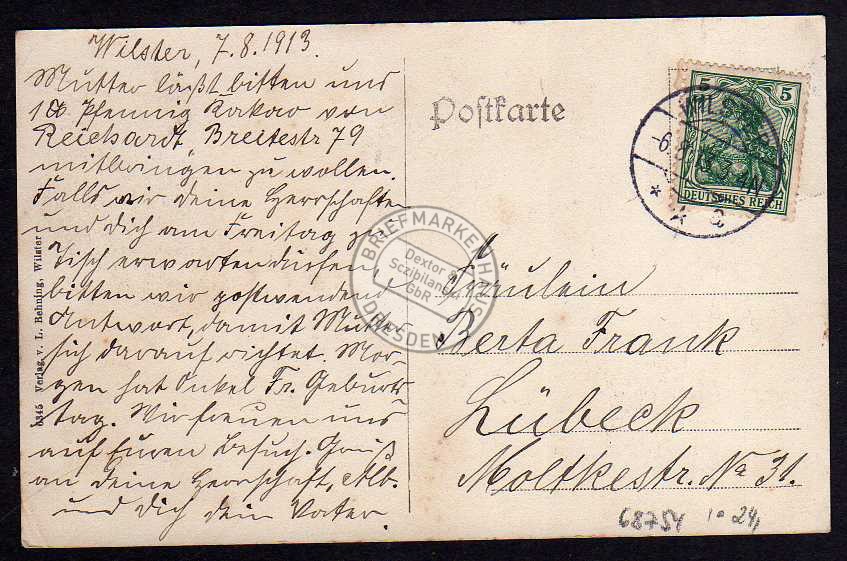 Wilster, 7.8.1913.
Mutter läßt bitten uns
10 Pfennig Kakao von
Reichardt Breitestr 79
mitbringen zu wollen.
Falls wir deine Herrschaften
und dich am Freitag zu
Tisch erwarten dürfen,
bitten wir postwendend
Antwort, damit Mutter
sich darauf richtet. Mor-
gen hat Onkel Fr. Geburts
tag. Wir freuen uns
auf Euren Besuch. Gruß
an deine Herrschaft, Alb.
und dich dein Vater.
6345 Verlag v. L. Behning, Wilster
Postkarte
5 5
DEUTSCHES REICH
WILSTER
Fräulein
Berta Frank
Lübeck
Moltkestr. No 31.
68754
24,
BRIEFMARKENHAUS
DRESDEN
Dextor &
Sczibilanski
GbR